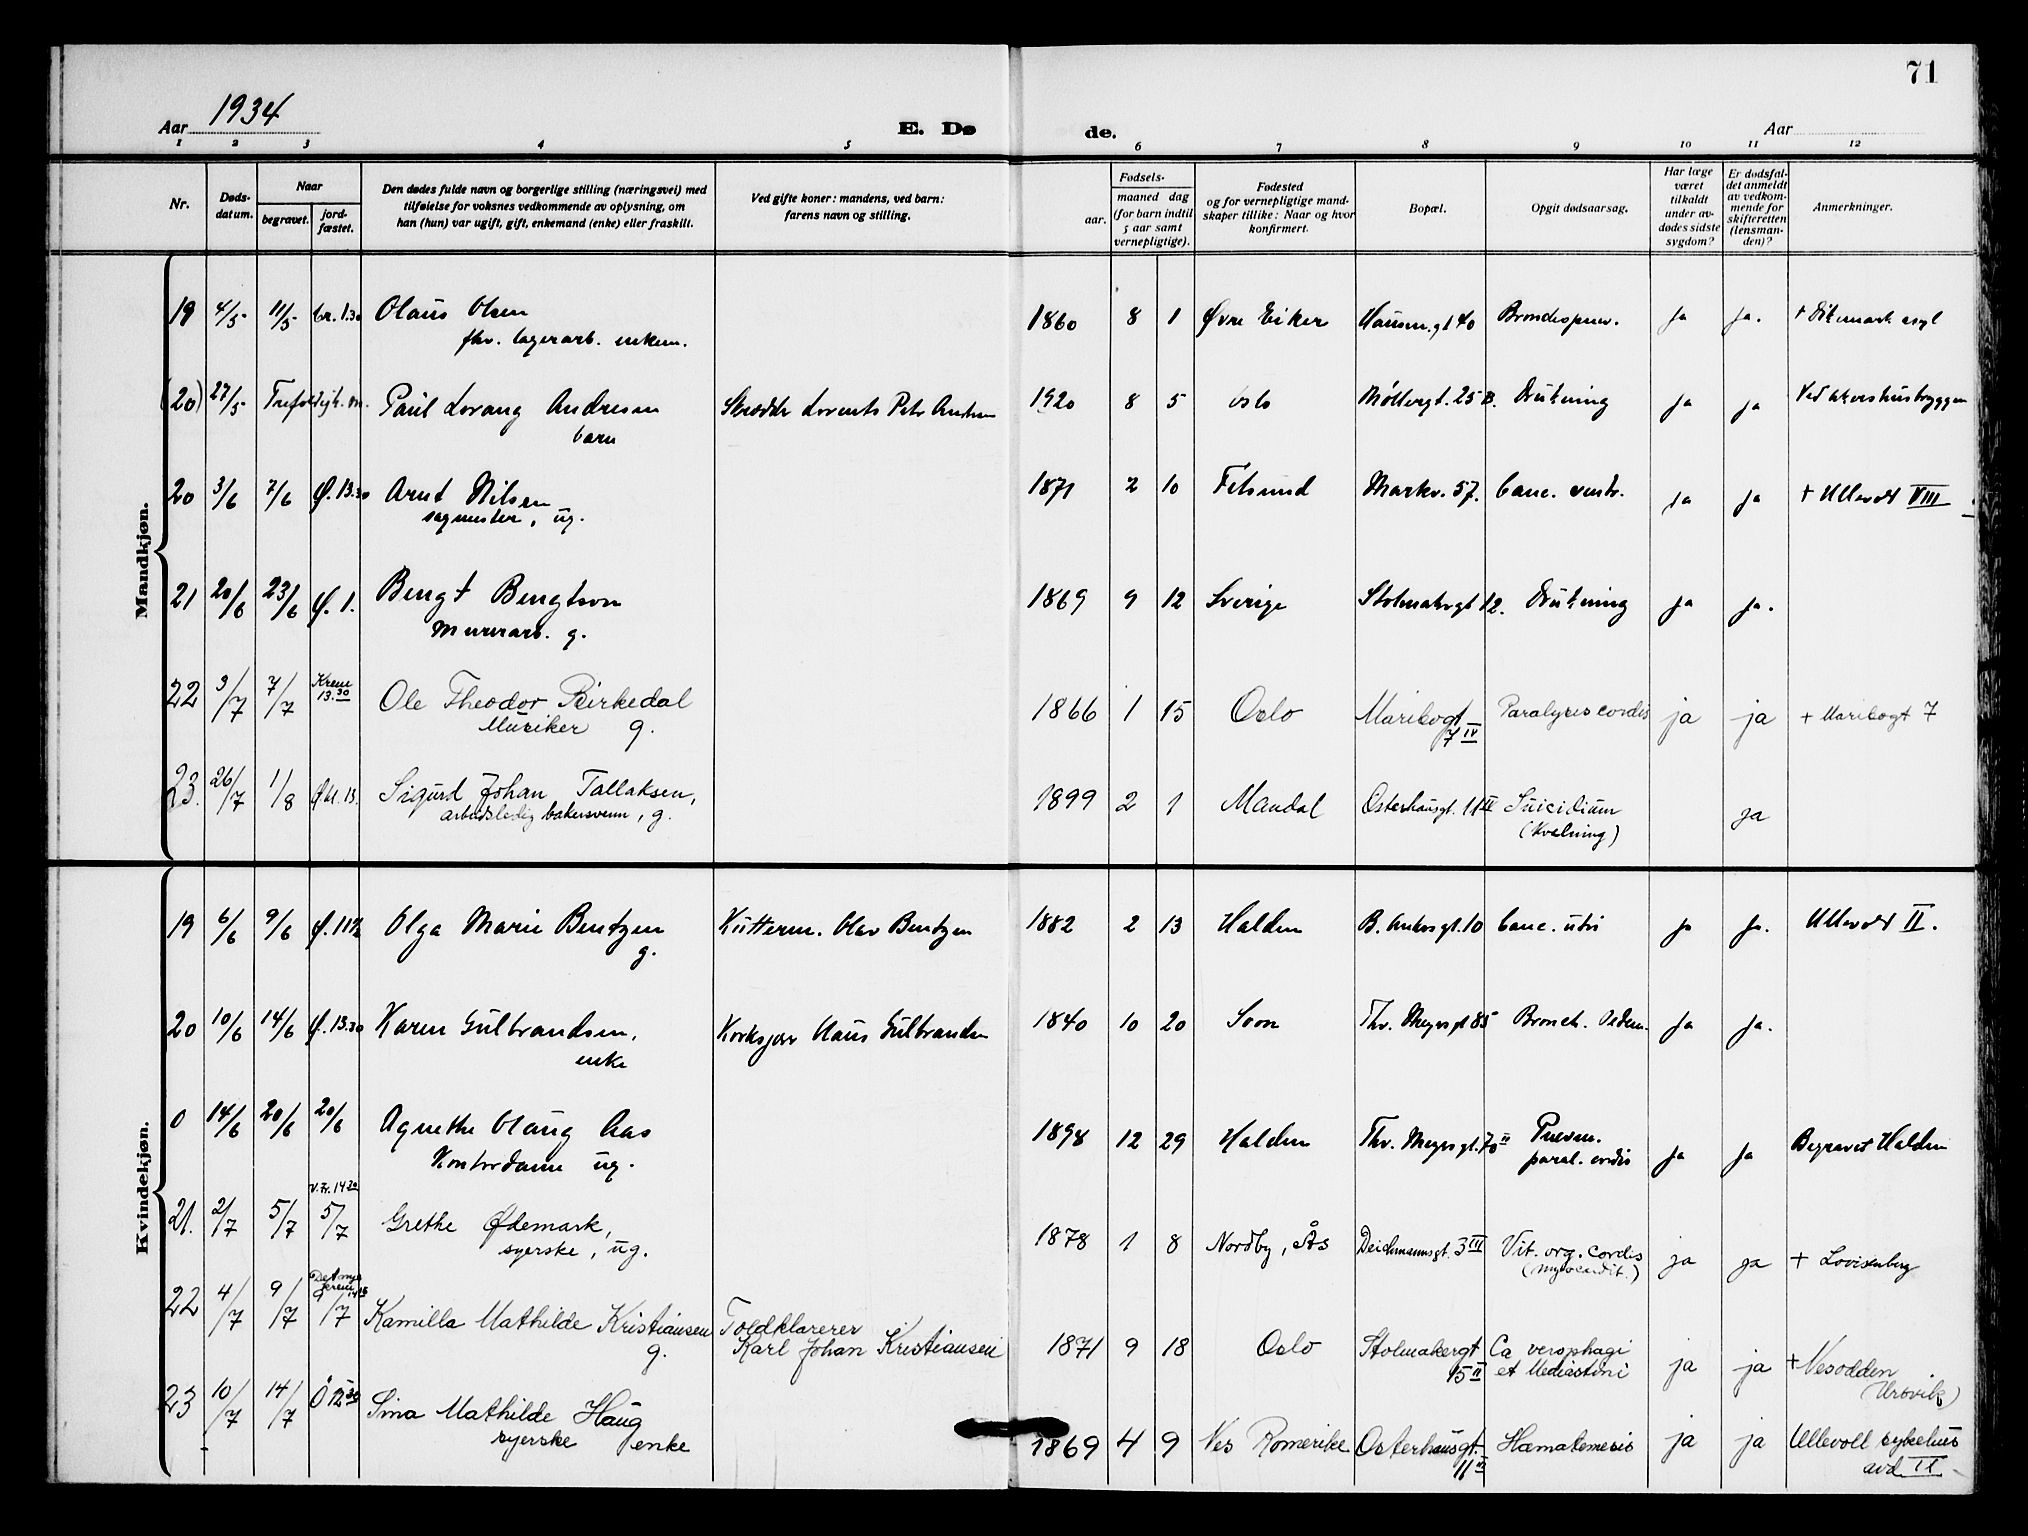 71
Aar 1934
E. Dø de.
Aar
1 2 3 4 5 6 7 8 9 10 11 12
Nr.
Døds-
datum.
Naar
begravet.
jord-
fæstet.
Den dødes fulde navn og borgerlige stilling (næringsvei) med
tilføielse for voksnes vedkommende av oplysning, om
han (hun) var ugift, gift, enkemand (enke) eller fraskilt.
Ved gifte koner: mandens, ved barn:
farens navn og stilling.
Fødsels-
aar.
maaned dag
(for barn indtil
5 aar samt
vernepligtige).
Fødested
og for vernepligtige mand-
skaper tillike: Naar og hvor
konfirmert.
Bopæl.
Opgit dødsaarsag.
Har læge
været
tilkaldt
under av-
dødes sidste
sygdom?
Er dødsfal-
det anmeldt
av vedkom-
mende for
skifteretten
(lensman-
den)?
Anmerkninger.
Mandkjøn.
19 4/5 11/5 Cr. 1.30 Olaus Olsen 1860 8 1 Øvre Eiker Hausm.gt 40 ja ja. + Dikemark asyl
fhv. lagerarb. enkem.
(20) 27/5 Paul Lorang Andresen 1920 8 5 Oslo Møllergt. 25 B. Drukning ja ja Ved Akershusbryggen
barn
20 3/6 7/6 Ø. 13.30 Arnt Nilsen 1871 2 10 Fetsund Markv. 57. Canc. ventr. ja ja + Ullevål VIII
sagmester, ug.
21 20/6 23/6 Ø. 1. Bengt Bengtson 1869 9 12 Sverige Stolmakergt 12. Drukning ja ja.
Murerarb. g.
22 3/7 7/7 Krem 13.30 Ole Theodor Birkedal 1866 1 15 Oslo Maribogt 7 IV Paralyses cordis ja ja + Maribogt 7
Musiker g.
23. 26/7 1/8 Økl. 13. Sigurd Johan Tallaksen, 1899 2 1 Mandal Osterhausgt. 11 II Suicidium ja
arbeidsledig bakersvenn, g. (Kvelning)
Kvindekjøn.
19 6/6 9/6 Ø. 11½ Olga Marie Bentzen Olav Bentzen 1882 2 13 Halden B. Ankersgt. 10 Canc. uteri ja ja. Ullevål II.
g.
20 10/6 14/6 Ø. 13.30 Karen Gulbrandsen, Korkskjær Claus Gulbrandsen 1840 10 20 Soon Thv. Meyersgt 85 Bronch. ja ja.
enke
0 14/6 20/6 20/6 Agnethe Olaug Aas 1898 12 29 Halden Thv. Meyersgt. 70 II Pneum. ja ja Begravet Halden
Kontordame ug. paral. cordis
21. 2/7 5/7 V.Fr. 14 30 5/7 Grethe Ødemark, 1878 1 8 Nordby, Ås Deichmannsgt. 3 III Vit. org. cordis ja ja + Lovisenberg
syerske, ug. (myocardit.)
22 4/7 9/7 Det nye krem. 9/7 Kamilla Mathilde Kristiansen Toldklarerer 1871 9 18 Oslo Stolmakergt 15 II Ca oesophagi ja ja + Nesodden
g. Karl Johan Kristiansen et Mediastini (Ursvik)
23 10/7 14/7 Ö 12 30 Sina Mathilde Haug 1869 4 9 Nes Romerike Osterhausgt. 11 III Hæmatemesis ja ja Ullevoll sykehus
syerske enke avd. II